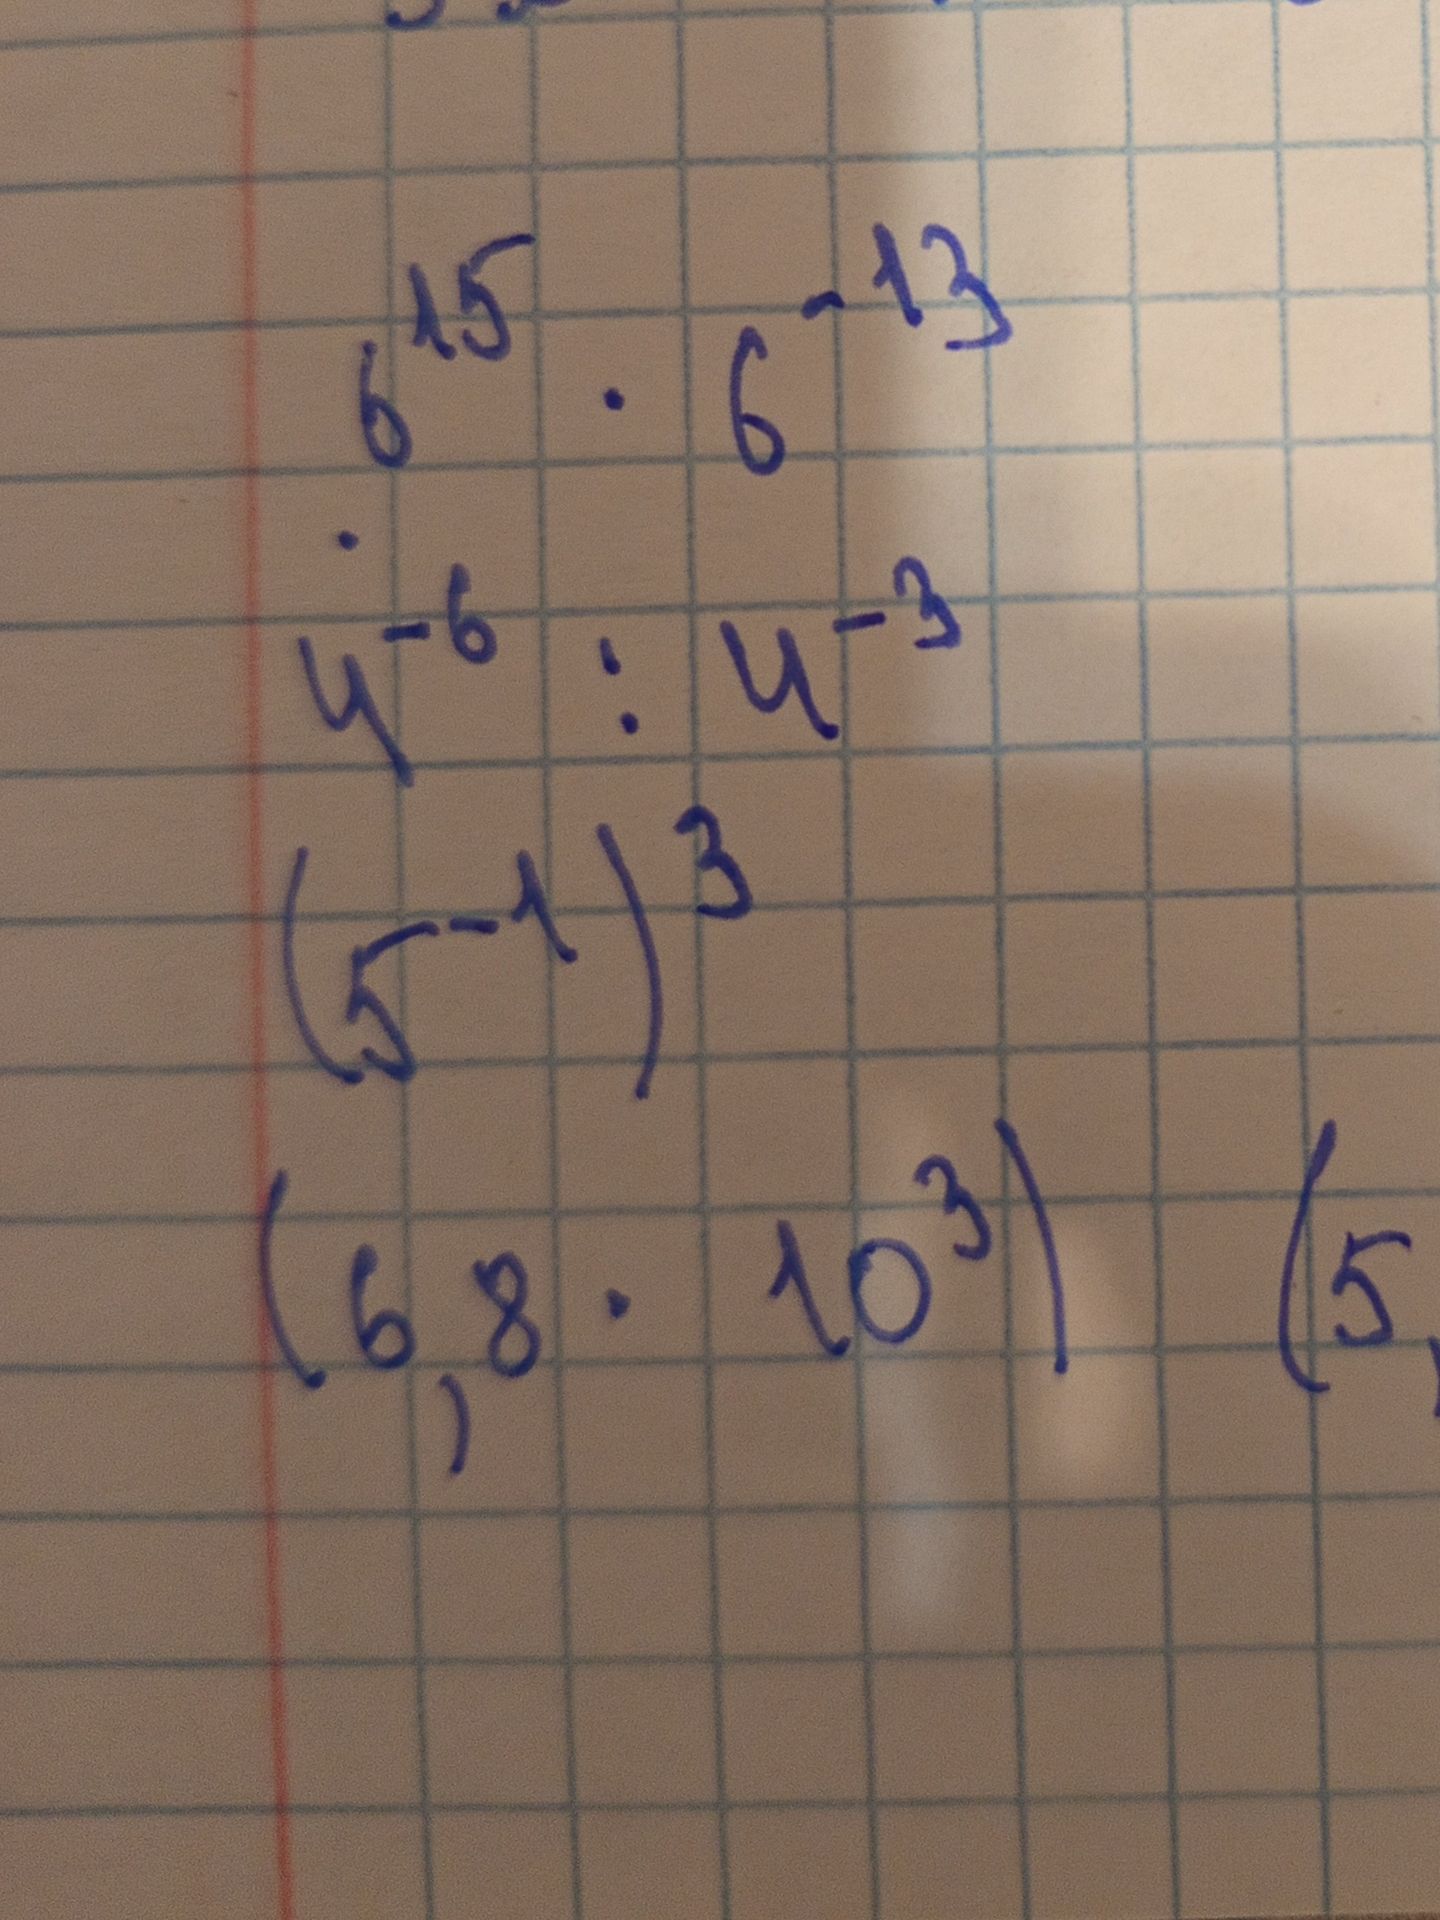 6¹⁵ · 6⁻¹³
4⁻⁶ : 4⁻³
(5⁻¹)³
(6,8 · 10³) (5,